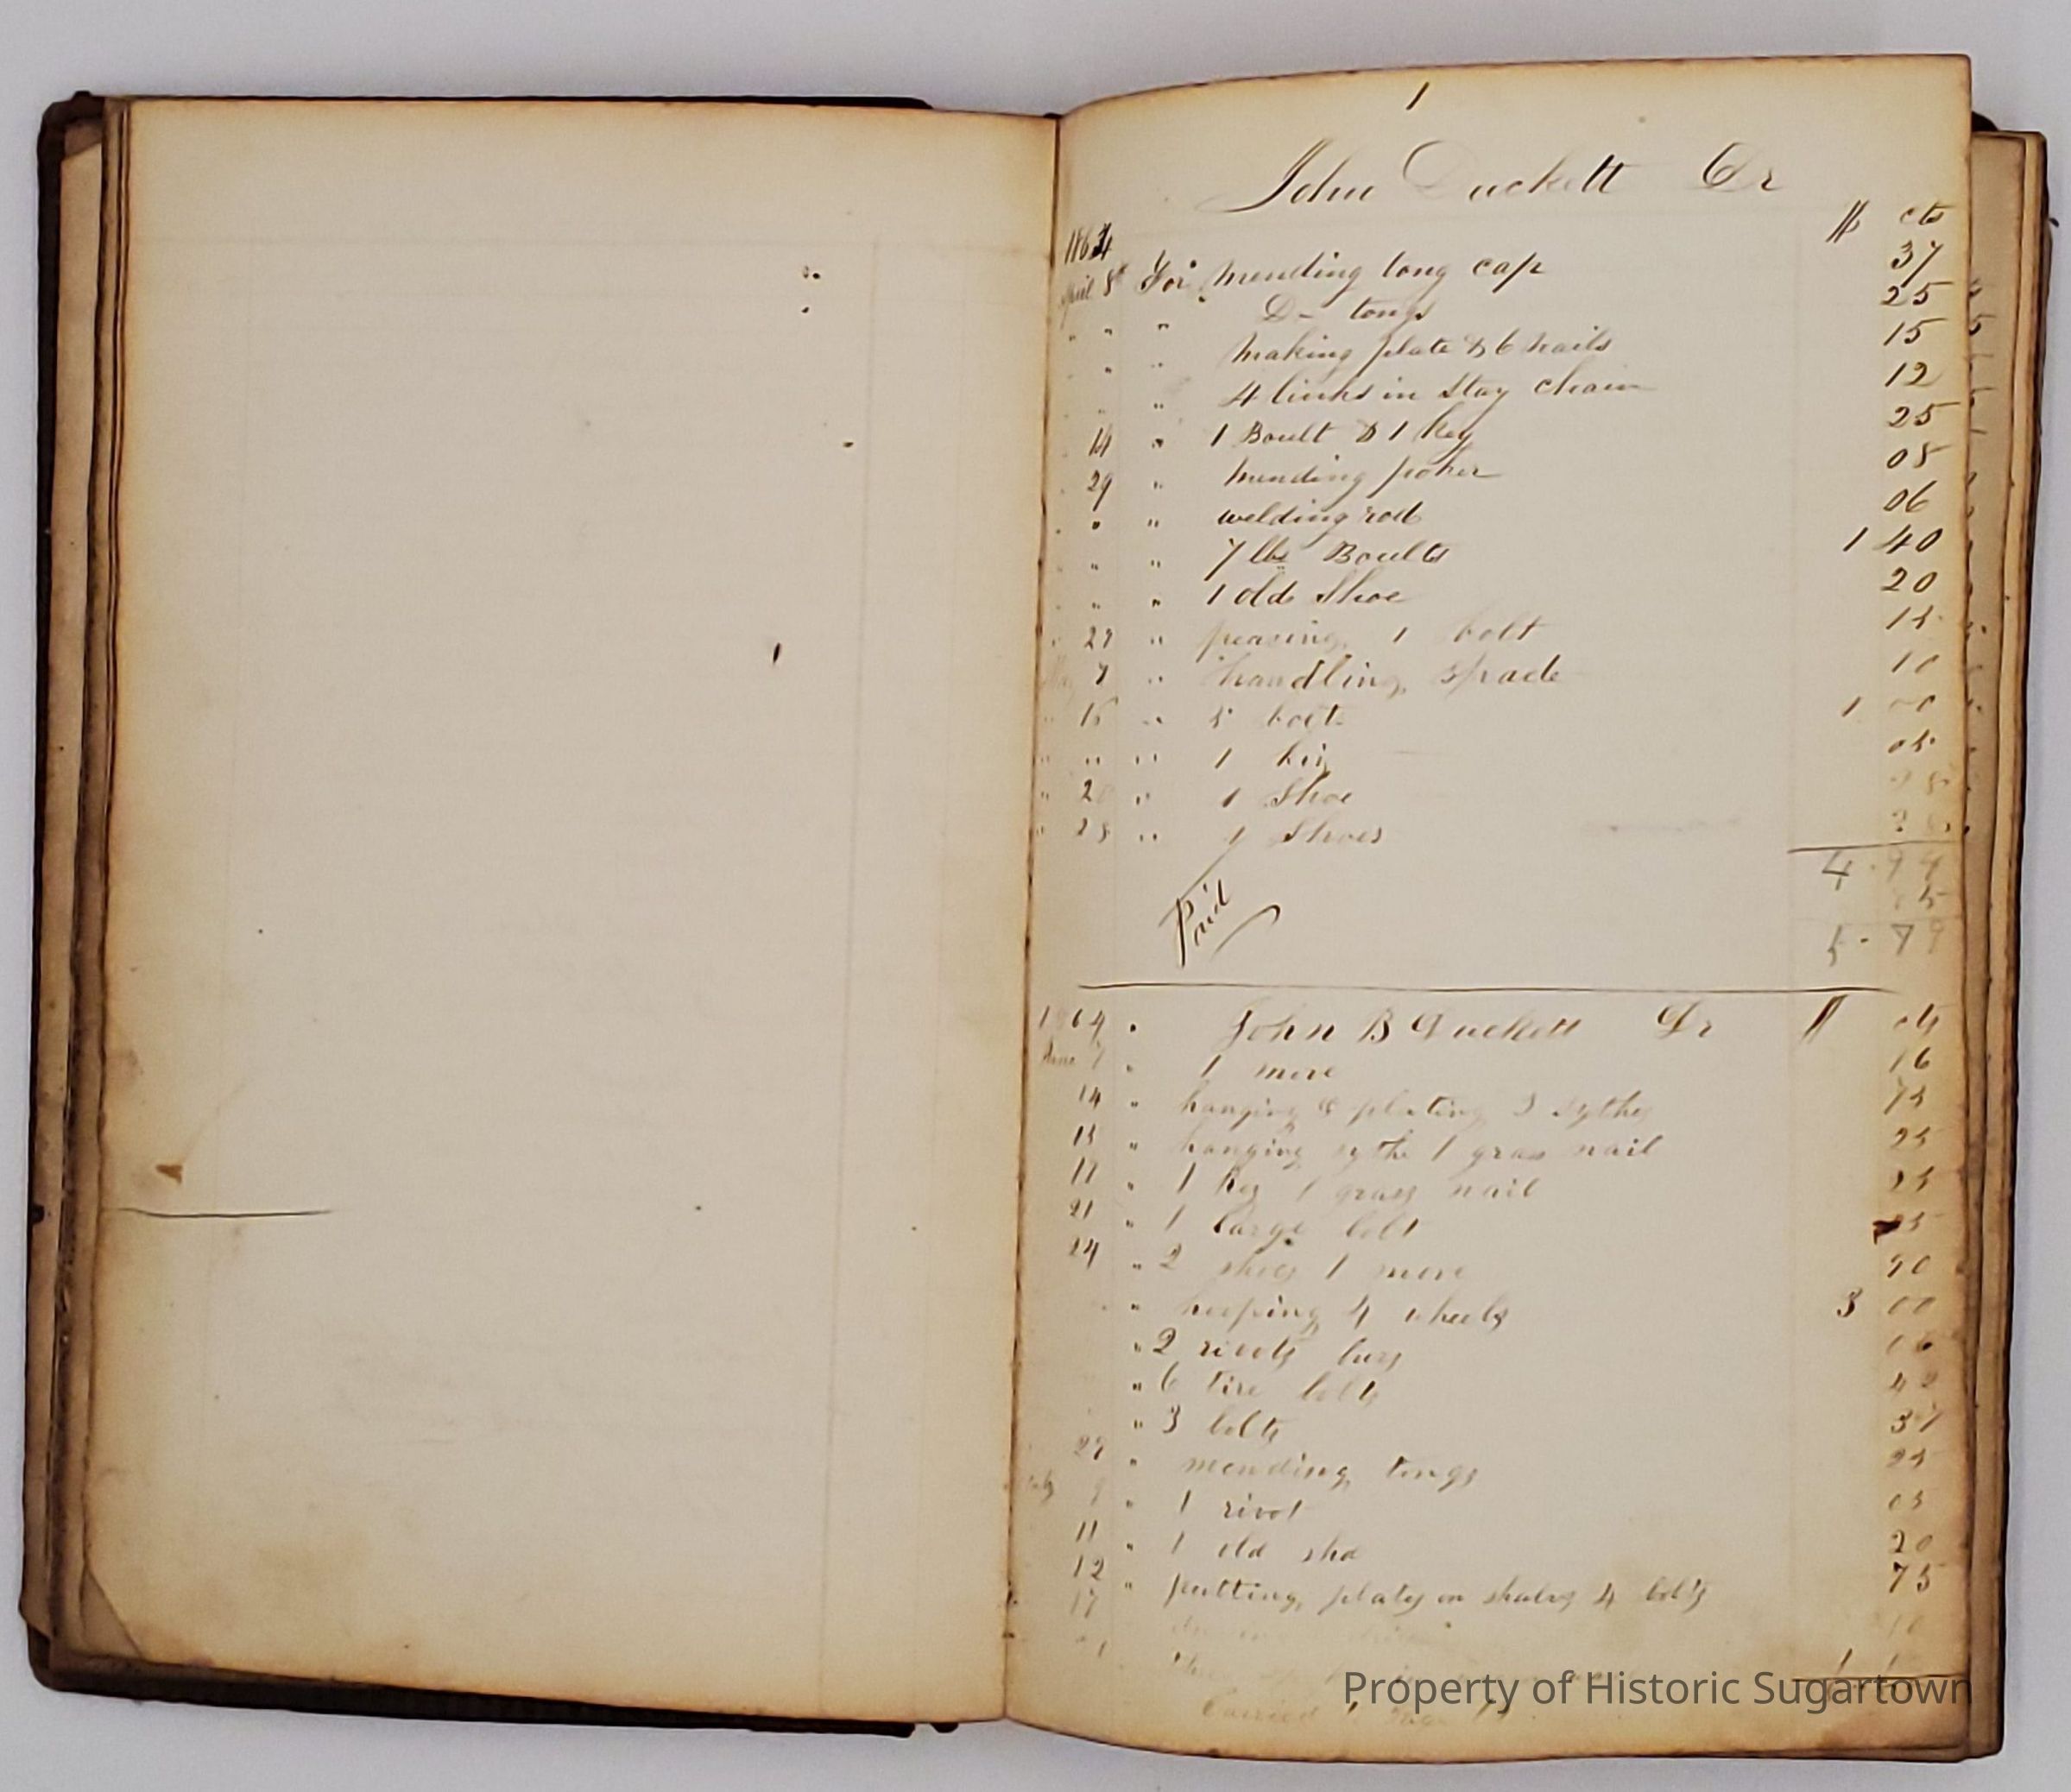 1
John Duckett Dr
1864 $ cts
April 8 For mending tong cap 37
" " D- tongs 25
" " making plate & 6 nails 15
" " 4 links in Stay chain 12
" 14 " 1 Boult & 1 Key 25
" 29 " mending poker 08
" " welding rod 06
" " 7 lbs Boults 1 40
" " 1 old Shoe 20
" 27 " peasing 1 bolt 15
7 " handling Spade 10
" 16 " 5 bolts 1 00
" " " 1 05
" 2 " 1 Shoe
" 28 " Shoes
4.99
Paid
5.79
1864 John B Duckett Dr $ cts
June 7 " 1 move 16
14 " hanging & plating 3 sythes 75
15 " hanging sythe 1 grass nail 25
17 " 1 Key 1 grass nail 25
21 " 1 large bolt 25
24 " 2 shoes 1 move 90
" hooping 4 wheels 3 00
" 2 rivots burs 06
" 6 tire bolts 42
" 3 bolts 37
27 " mending tongs 25
July 9 " 1 rivot 05
11 " 1 old sho 20
12 " putting plates on shalvs 4 bolts 75
17 10
Carried to
Property of Historic Sugartown